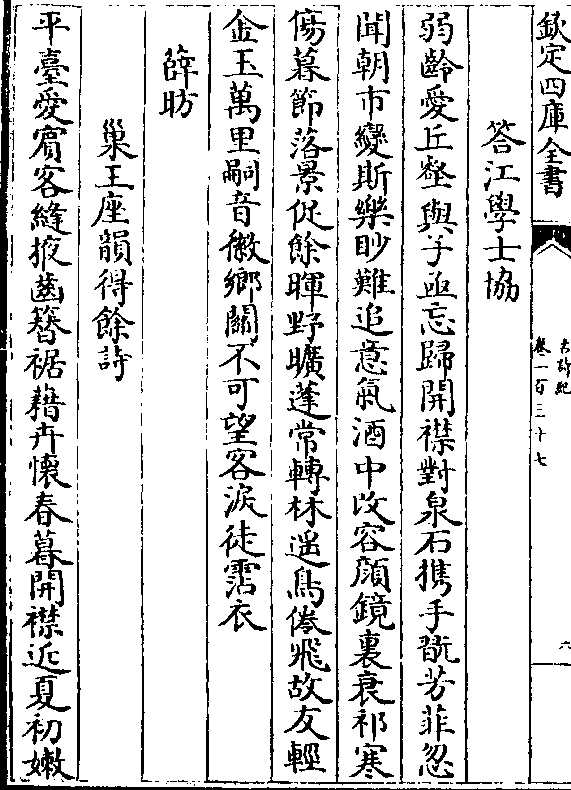 欽定四庫全書
古詩紀
卷一百三十七
六
答江學士協
弱齡愛丘壑與子亟忘歸開襟對泉石携手翫芳菲忽
聞朝市變斯樂眇難追意氣酒中改容顔鏡裏衰祁寒
傷暮節落景促餘暉野曠蓬常轉林遥鳥倦飛故友輕
金玉萬里嗣音徽鄉關不可望客淚徒霑衣
薛昉
巢王座韻得餘詩
平臺愛賓客縫掖齒簪裾藉卉懷春暮開襟近夏初嫩